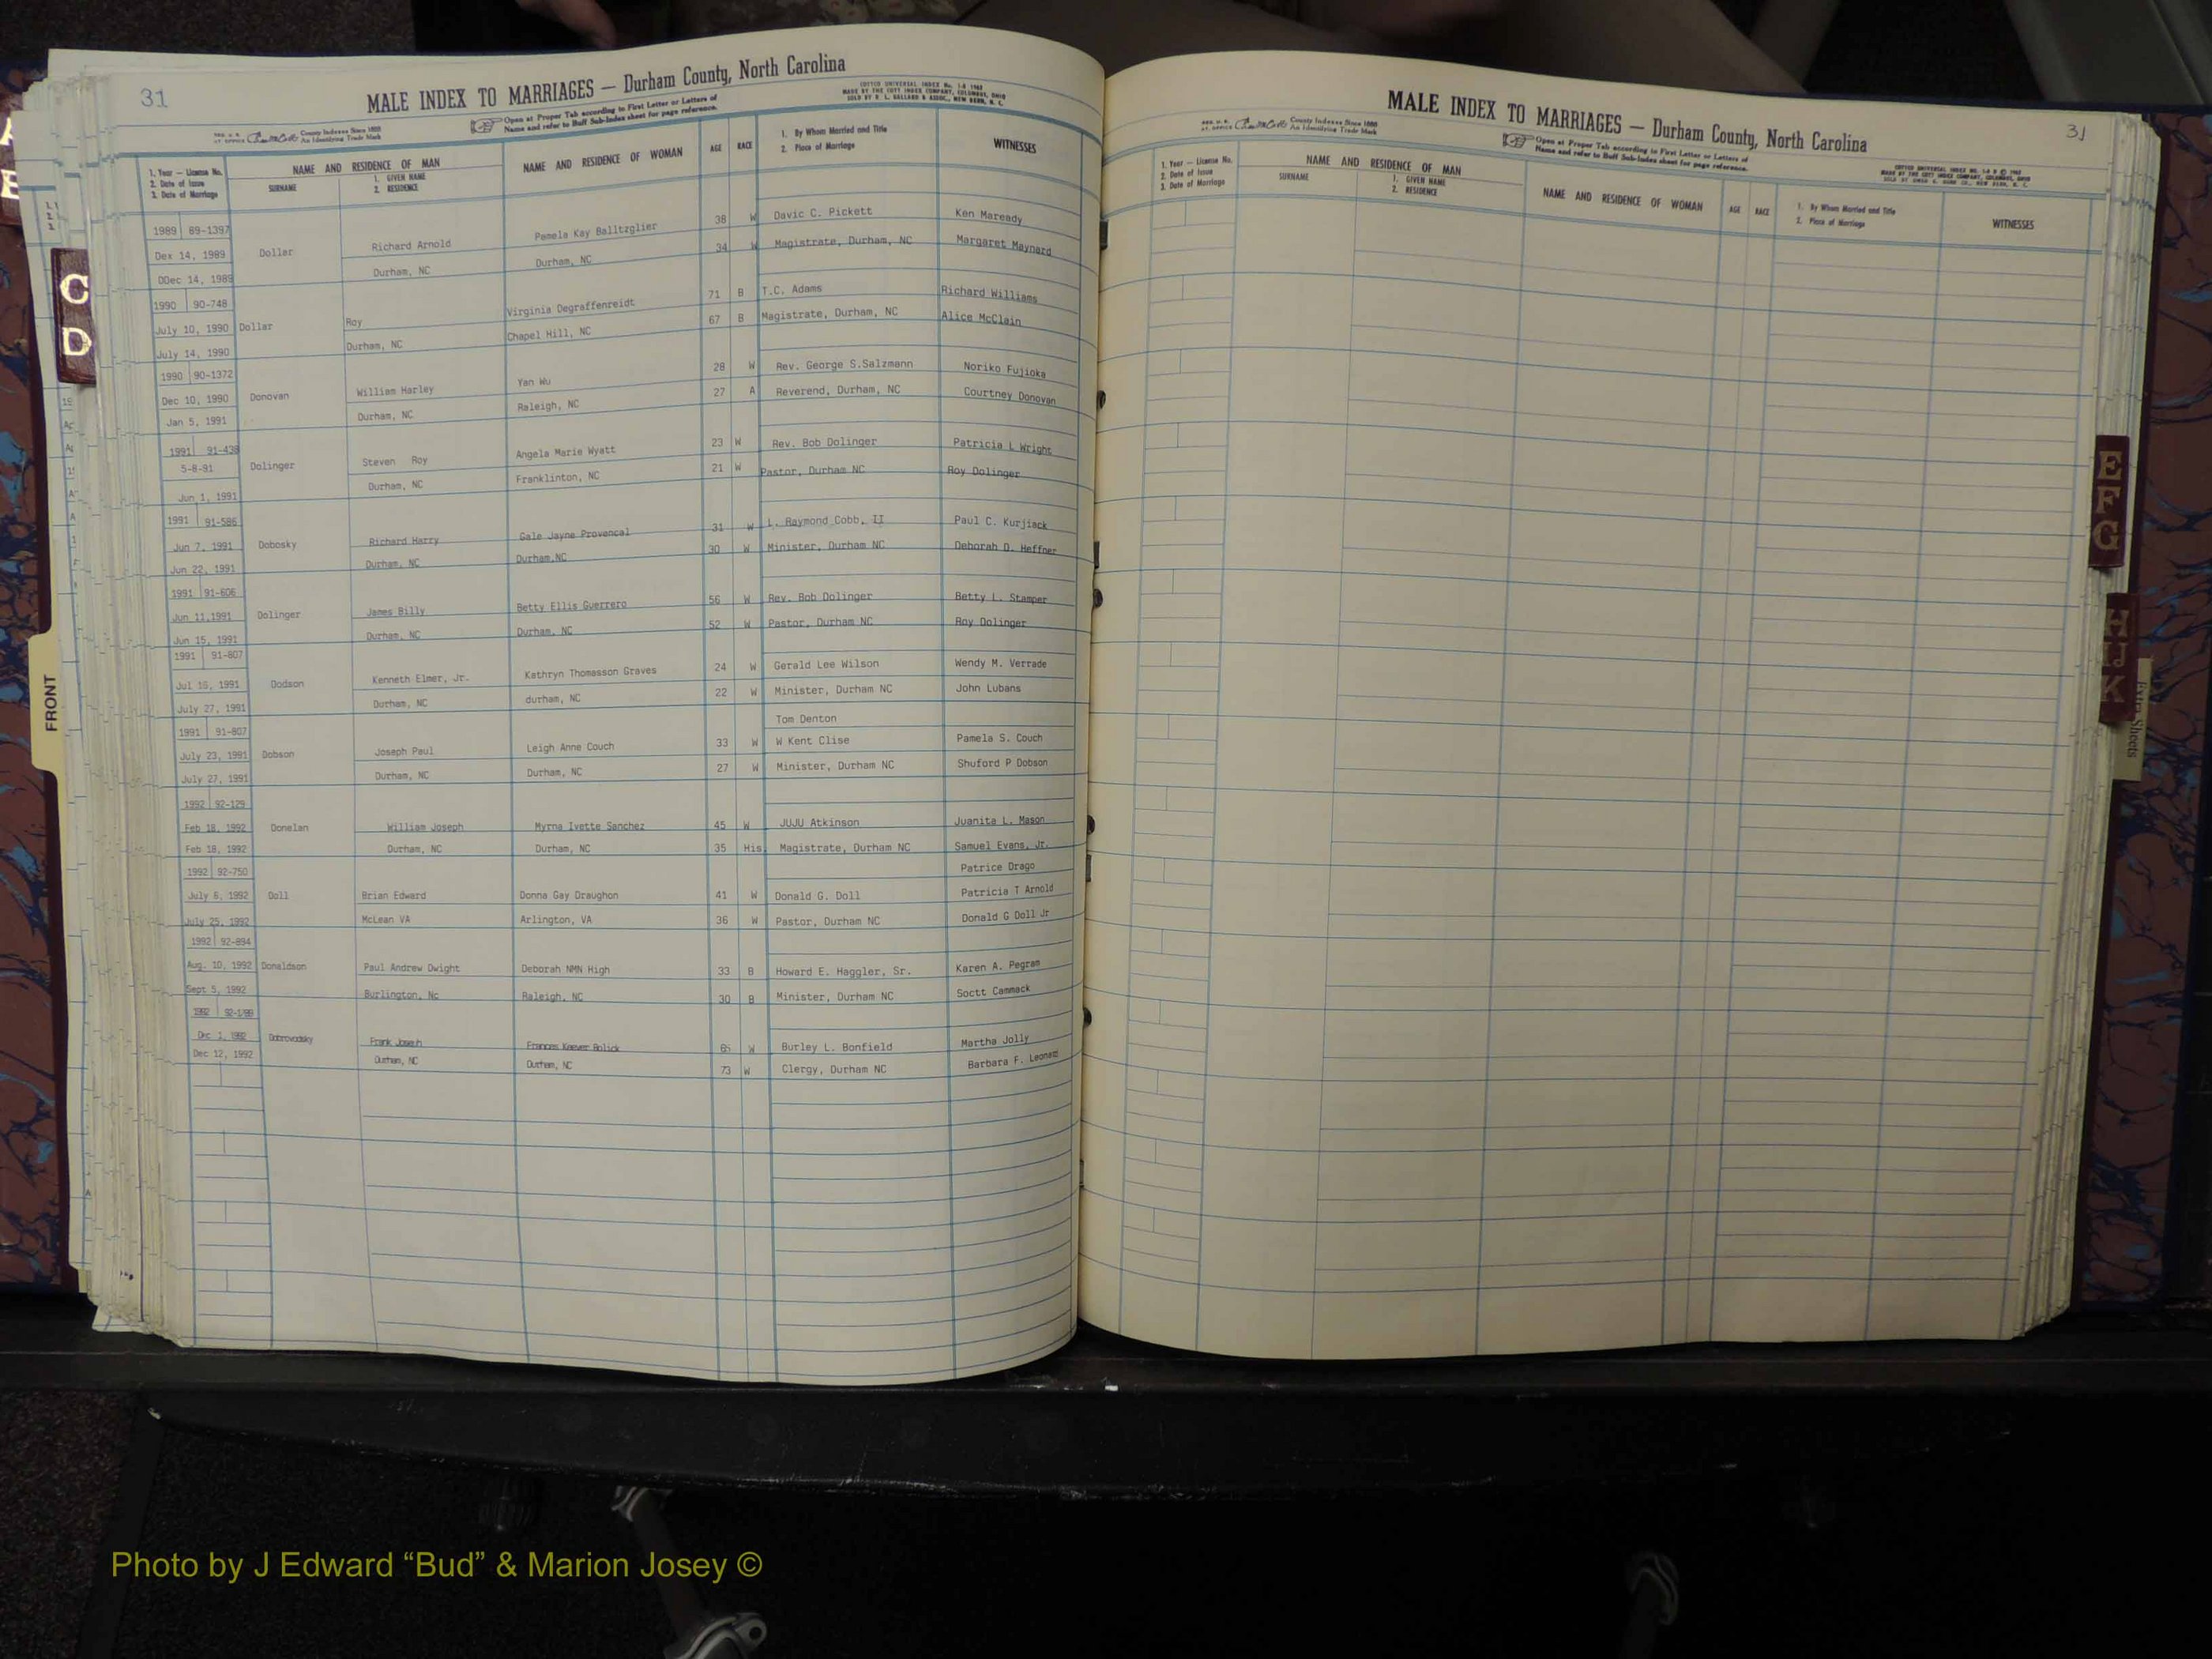 31
MALE INDEX TO MARRIAGES — Durham County, North Carolina
COTTED UNIVERSAL INDEX No. 1-8 1962
MADE BY THE COTT INDEX COMPANY, COLUMBUS, OHIO
County Indexes Since 1888
An Identifying Trade Mark
Open at Proper Tab according to First Letter or Letters of
Name and refer to Buff Sub-Index sheet for page reference.
1. Year — License No.
2. Date of Issue
3. Date of Marriage
NAME AND RESIDENCE OF MAN
SURNAME
1. GIVEN NAME
2. RESIDENCE
NAME AND RESIDENCE OF WOMAN
AGE
RACE
1. By Whom Married and Title
2. Place of Marriage
WITNESSES
1989 89-1397 Pamela Kay Balltzglier 38 W Davic C. Pickett Ken Maready
Dex 14, 1989 Dollar Richard Arnold Durham, NC 34 W Magistrate, Durham, NC Margaret Maynard
DDec 14, 1989 Durham, NC
1990 90-748 Virginia Degraffenreidt 71 B T.C. Adams Richard Williams
July 10, 1990 Dollar Roy Chapel Hill, NC 67 B Magistrate, Durham, NC Alice McClain
July 14, 1990 Durham, NC
1990 90-1372 Yan Wu 28 W Rev. George S.Salzmann Noriko Fujioka
Dec 10, 1990 Donovan William Harley Raleigh, NC 27 A Reverend, Durham, NC Courtney Donovan
Jan 5, 1991 Durham, NC
1991 91-438 Angela Marie Wyatt 23 W Rev. Bob Dolinger Patricia L Wright
5-8-91 Dolinger Steven Roy Franklinton, NC 21 W Pastor, Durham NC Roy Dolinger
Jun 1, 1991 Durham, NC
1991 91-586 Gale Jayne Provencal 31 W L. Raymond Cobb, II Paul C. Kurjiack
Jun 7, 1991 Dobosky Richard Harry Durham,NC 30 W Minister, Durham NC Deborah D. Heffner
Jun 22, 1991 Durham, NC
1991 91-606 Betty Ellis Guerrero 56 W Rev. Bob Dolinger Betty L. Stamper
Jun 11,1991 Dolinger James Billy Durham, NC 52 W Pastor, Durham NC Roy Dolinger
Jun 15, 1991 Durham, NC
1991 91-807 Kathryn Thomasson Graves 24 W Gerald Lee Wilson Wendy M. Verrade
Jul 16, 1991 Dodson Kenneth Elmer, Jr. durham, NC 22 W Minister, Durham NC John Lubans
July 27, 1991 Durham, NC
Tom Denton
1991 91-807 Leigh Anne Couch 33 W W Kent Clise Pamela S. Couch
July 23, 1991 Dobson Joseph Paul Durham, NC 27 W Minister, Durham NC Shuford P Dobson
July 27, 1991 Durham, NC
1992 92-129
Feb 18, 1992 Donelan William Joseph Myrna Ivette Sanchez 45 W JUJU Atkinson Juanita L. Mason
Feb 18, 1992 Durham, NC Durham, NC 35 His Magistrate, Durham NC Samuel Evans, Jr.
1992 92-750 Patrice Drago
July 6, 1992 Doll Brian Edward Donna Gay Draughon 41 W Donald G. Doll Patricia T Arnold
July 25, 1992 McLean VA Arlington, VA 36 W Pastor, Durham NC Donald G Doll Jr
1992 92-894
Aug. 10, 1992 Donaldson Paul Andrew Dwight Deborah NMN High 33 B Howard E. Haggler, Sr. Karen A. Pegram
Sept 5, 1992 Burlington, Nc Raleigh, NC 30 B Minister, Durham NC Soctt Cammack
1992
Dec 1, 1992 Dobrovodsky Frank Joseph Frances Keever Bolick 65 W Burley L. Bonfield Martha Jolly
Dec 12, 1992 Durham, NC Durham, NC 73 W Clergy, Durham NC Barbara F. Leonard
31
MALE INDEX TO MARRIAGES — Durham County, North Carolina
County Indexes Since 1888
An Identifying Trade Mark
Open at Proper Tab according to First Letter or Letters of
Name and refer to Buff Sub-Index sheet for page reference.
1. Year — License No.
2. Date of Issue
3. Date of Marriage
NAME AND RESIDENCE OF MAN
SURNAME
1. GIVEN NAME
2. RESIDENCE
NAME AND RESIDENCE OF WOMAN
AGE
RACE
1. By Whom Married and Title
2. Place of Marriage
WITNESSES
C
D
FRONT
E
F
G
H
IJ
K
Photo by J Edward “Bud” & Marion Josey ©